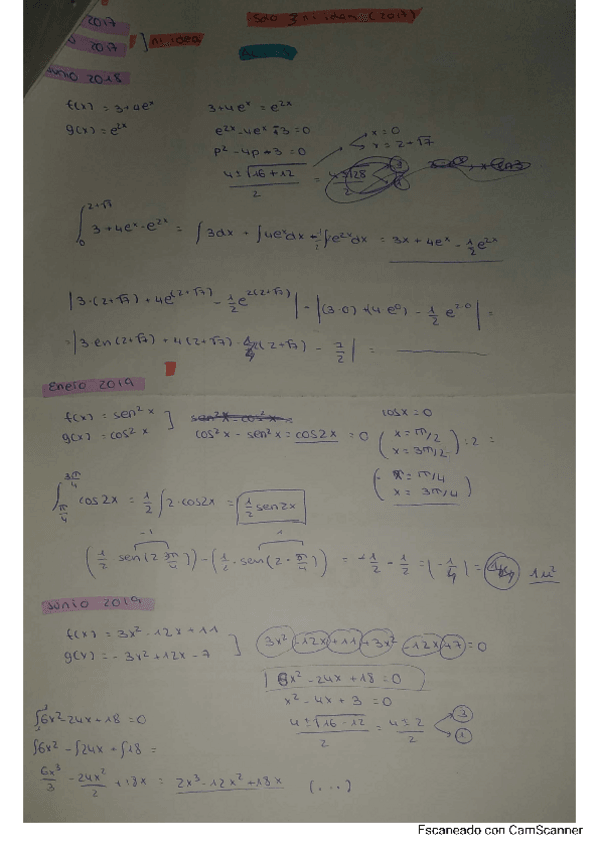 2017
2017 ] ni idea
Junio 2018
f(x) = 3+4eˣ
g(x) = e²ˣ
3+4eˣ = e²ˣ
e²ˣ-4eˣ-3=0
p²-4p-3=0
(4±√(16+12))/2 = (4±√28)/2
x=0
x=2+√7
∫₀^(2+√7) 3+4eˣ-e²ˣ = ∫3dx + ∫4eˣdx + ½∫e²ˣdx = 3x + 4eˣ - ½e²ˣ
|3·(2+√7) + 4e^(2+√7) - ½e^(2(2+√7))| - |(3·0)+(4e⁰) - ½e^(2·0)| =
Enero 2019
f(x) = sen²x
g(x) = cos²x ]
cos²x - sen²x = cos2x = 0
cosx=0
(x=π/2
x=3π/2) :2 =
(x=π/4
x=3π/4)
∫_(π/4)^(3π/4) cos2x = ½∫2·cos2x = ½sen2x
-1 1
(½ sen(2 3π/4)) - (½·sen(2·π/4)) = -½ - ½ = 1u²
Junio 2019
f(x) = 3x²-12x+11
g(x) = -3x²+12x-7 ]
3x²-12x+11+3x²-12x+7=0
6x²-24x+18=0
x²-4x+3=0
(4±√(16-12))/2 = (4±2)/2
3
1
∫₁³6x²-24x+18=0
∫6x²-∫24x+∫18=
6x³/3 - 24x²/2 + 18x = 2x³-12x²+18x (...)
Escaneado con CamScanner